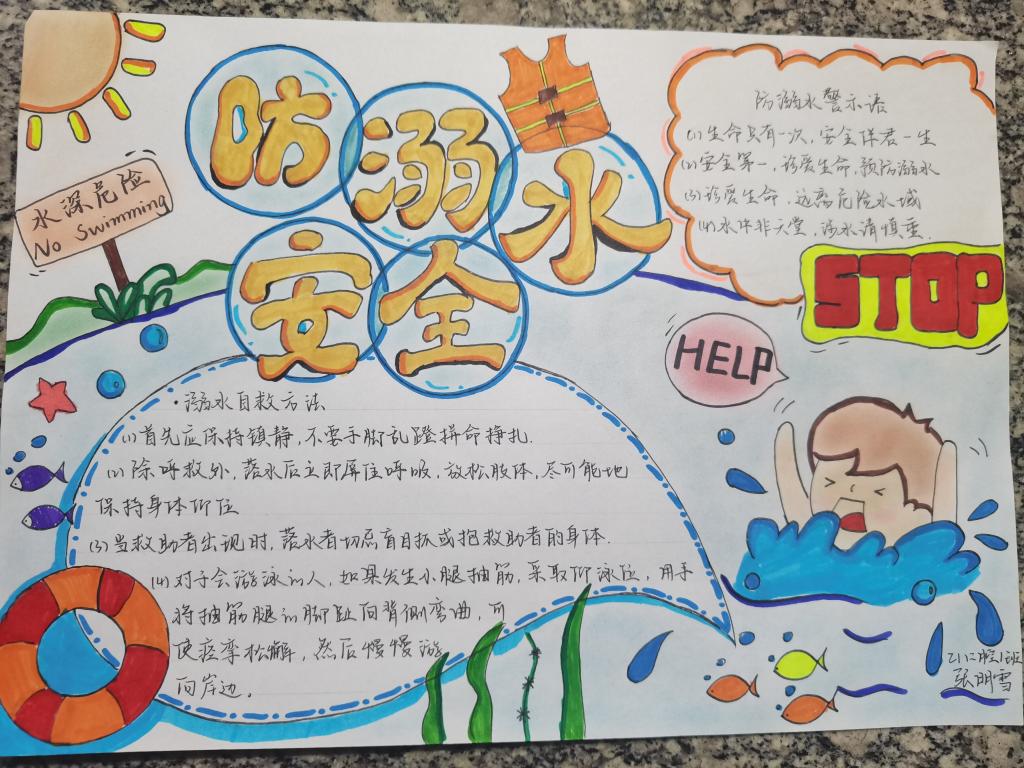 防溺水
安全
水深危险
No Swimming
防溺水警示语
(1)生命只有一次,安全伴君一生
(2)安全第一,珍爱生命,预防溺水
(3)珍爱生命,远离危险水域
(4)水中非天堂,涉水请慎重.
STOP
HELP
·溺水自救方法
(1)首先应保持镇静,不要手脚乱蹬拼命挣扎.
(2)除呼救外,落水后立即屏住呼吸,放松肢体,尽可能地
保持身体仰位
(3)当救助者出现时,落水者切忌盲目抓或抱救助者的身体.
(4)对于会游泳的人,如果发生小腿抽筋,采取仰泳位,用手
将抽筋腿的脚趾向背侧弯曲,可
使痉挛松解,然后慢慢游
向岸边。
张明雪